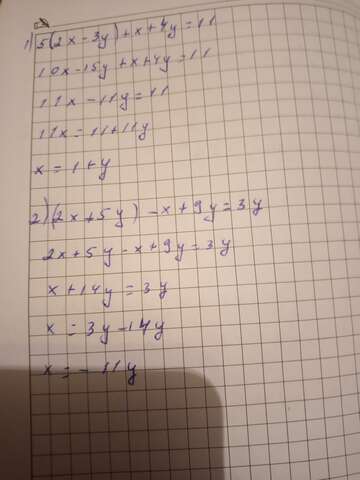 1) 5(2x-3y)+x+4y=11
10x-15y+x+4y=11
11x-11y=11
11x=11+11y
x=1+y
2) (2x+5y)-x+9y=3y
2x+5y-x+9y=3y
x+14y=3y
x=3y-14y
x=-11y